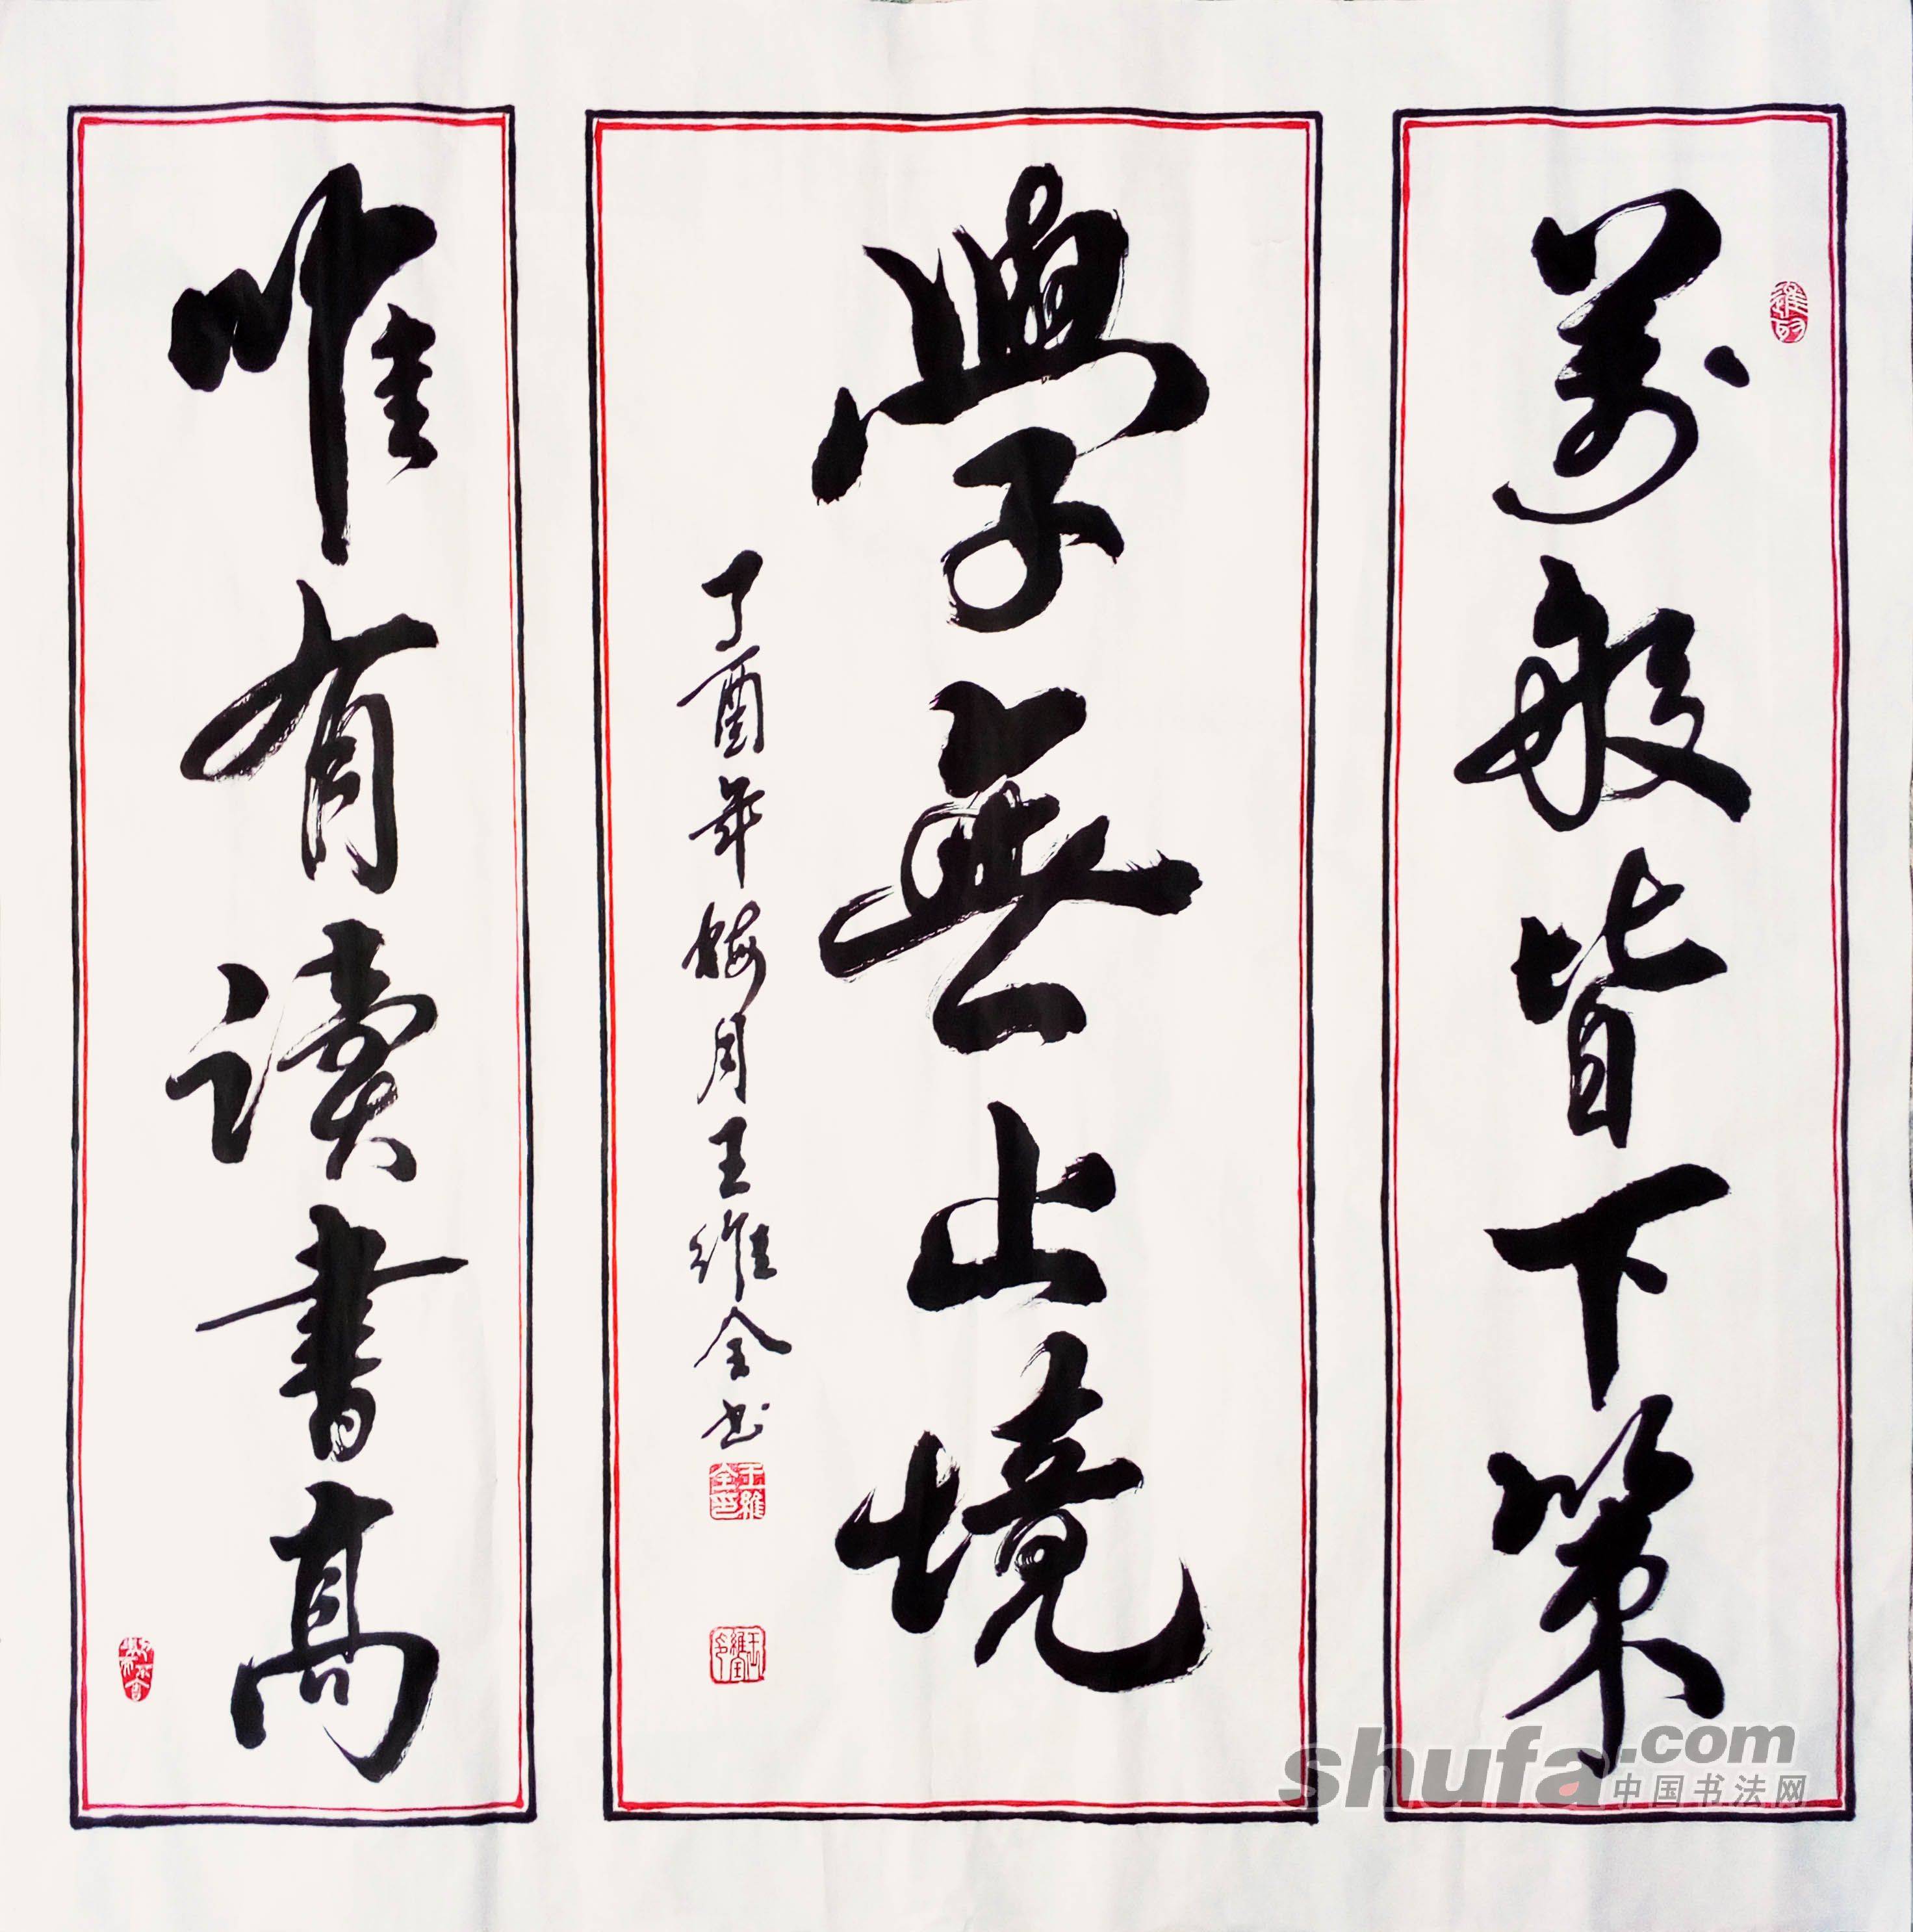 萬般皆下策
學無止境
丁酉年梅月王維全书
王維全印
唯有讀書高
shufa.com
中国书法网